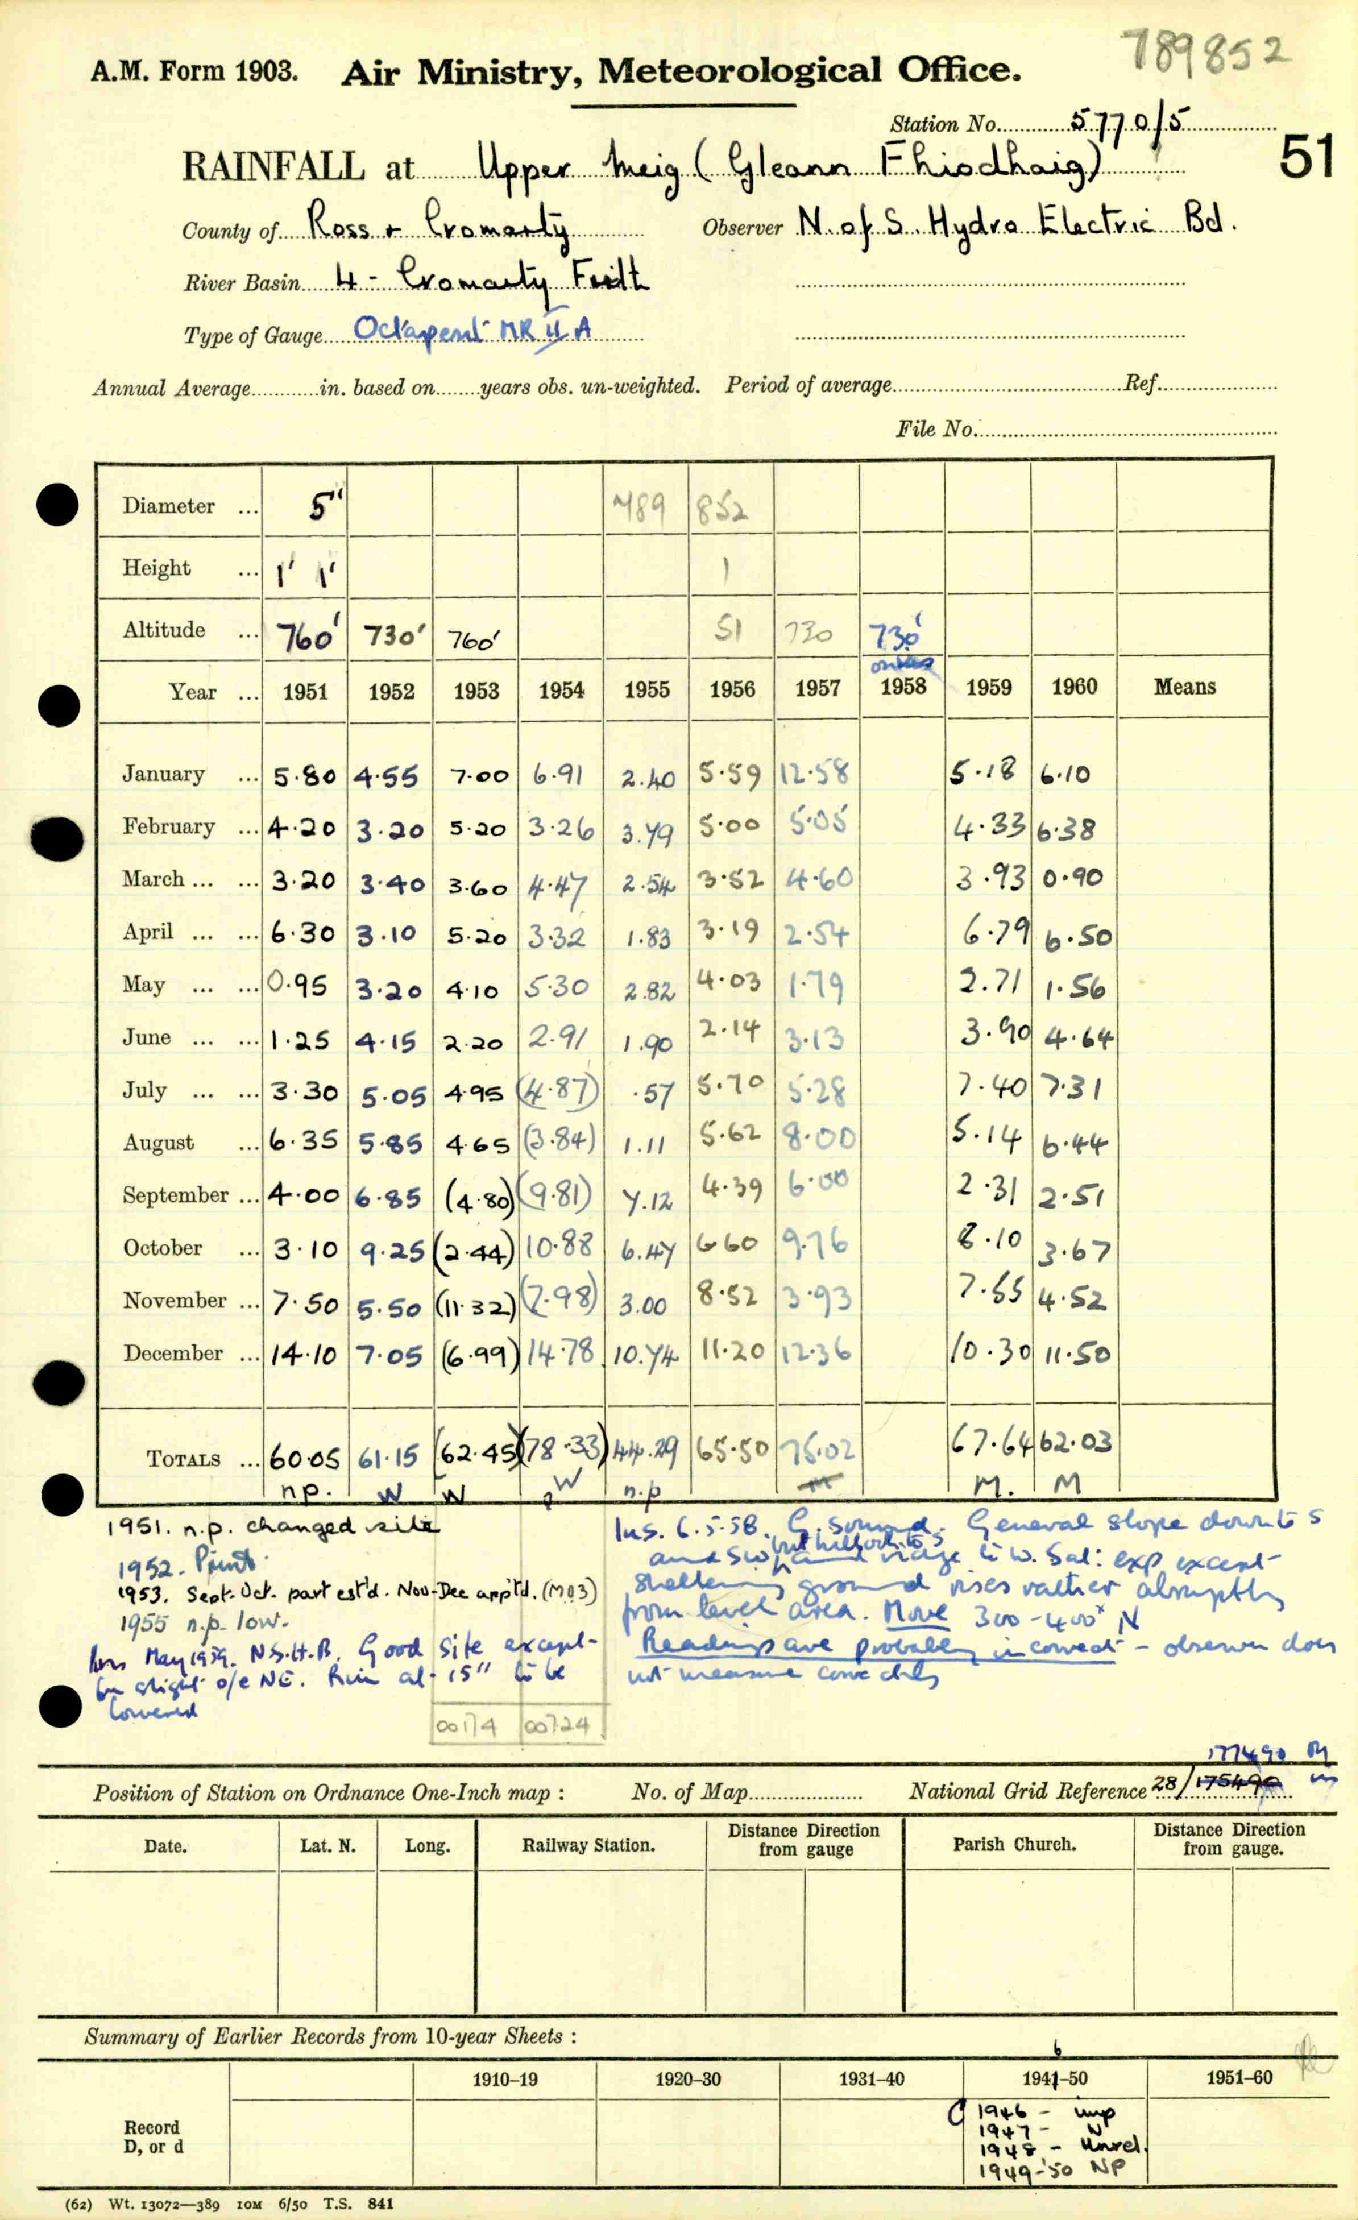 789852
A.M. Form 1903. Air Ministry, Meteorological Office.
Station No. 5770/5
51
RAINFALL at Upper Meig (Gleann Fhiodhaig)
County of Ross + Cromarty Observer N. of S. Hydro Electric Bd.
River Basin 4 - Cromarty Firth
Type of Gauge Octapent MK II A
Annual Average in. based on years obs. un-weighted. Period of average Ref.
File No.
Diameter ... 5" 789 852
Height ... 1' 1' 1
Altitude ... 760' 730' 760' 51 730 730'
Year ... 1951 1952 1953 1954 1955 1956 1957 1958 1959 1960 Means
January ... 5.80 4.55 7.00 6.91 2.40 5.59 12.58 5.18 6.10
February ... 4.20 3.20 5.20 3.26 3.79 5.00 5.05 4.33 6.38
March ... ... 3.20 3.40 3.60 4.47 2.54 3.52 4.60 3.93 0.90
April ... ... 6.30 3.10 5.20 3.32 1.83 3.19 2.54 6.79 6.50
May ... ... 0.95 3.20 4.10 5.30 2.82 4.03 1.79 2.71 1.56
June ... ... 1.25 4.15 2.20 2.91 1.90 2.14 3.13 3.90 4.64
July ... ... 3.30 5.05 4.95 (4.87) .57 5.70 5.28 7.40 7.31
August ... 6.35 5.85 4.65 (3.84) 1.11 5.62 8.00 5.14 6.44
September ... 4.00 6.85 (4.80) (9.81) 7.12 4.39 6.00 2.31 2.51
October ... 3.10 9.25 (2.44) 10.88 6.47 6.60 9.76 8.10 3.67
November ... 7.50 5.50 (11.32) (7.98) 3.00 8.52 3.93 7.55 4.52
December ... 14.10 7.05 (6.99) 14.78 10.74 11.20 12.36 10.30 11.50
TOTALS ... 60.05 61.15 (62.45) (78.33) 44.29 65.50 75.02 67.64 62.03
n.p. W W W n.p M M. M
1951. n.p. changed site
1952. Print.
1953. Sept-Oct. part est'd. Nov-Dec app'td. (M03)
1955 n.p. low.
May 1959. N.S.H.B. Good site except
for slight o/e NE. Rim at 15" to be
lowered
Ins. 6.5.58. G. sound. General slope down to S
and SW but hillock to S and ridge to W. Sat: exp except
sheltering ground rises rather abruptly
from level area. Move 300-400x N
Readings are probably incorrect - observer does
not measure correctly
00174 00724
177490
Position of Station on Ordnance One-Inch map : No. of Map National Grid Reference 28/175490
Date. Lat. N. Long. Railway Station. Distance from Direction gauge Parish Church. Distance from Direction gauge.
Summary of Earlier Records from 10-year Sheets :
6
1910–19 1920–30 1931–40 1941–50 1951–60
Record D, or d
C 1946 - imp
1947 - N
1948 - Unrel.
1949-'50 NP
(62) Wt. 13072—389 10M 6/50 T.S. 841